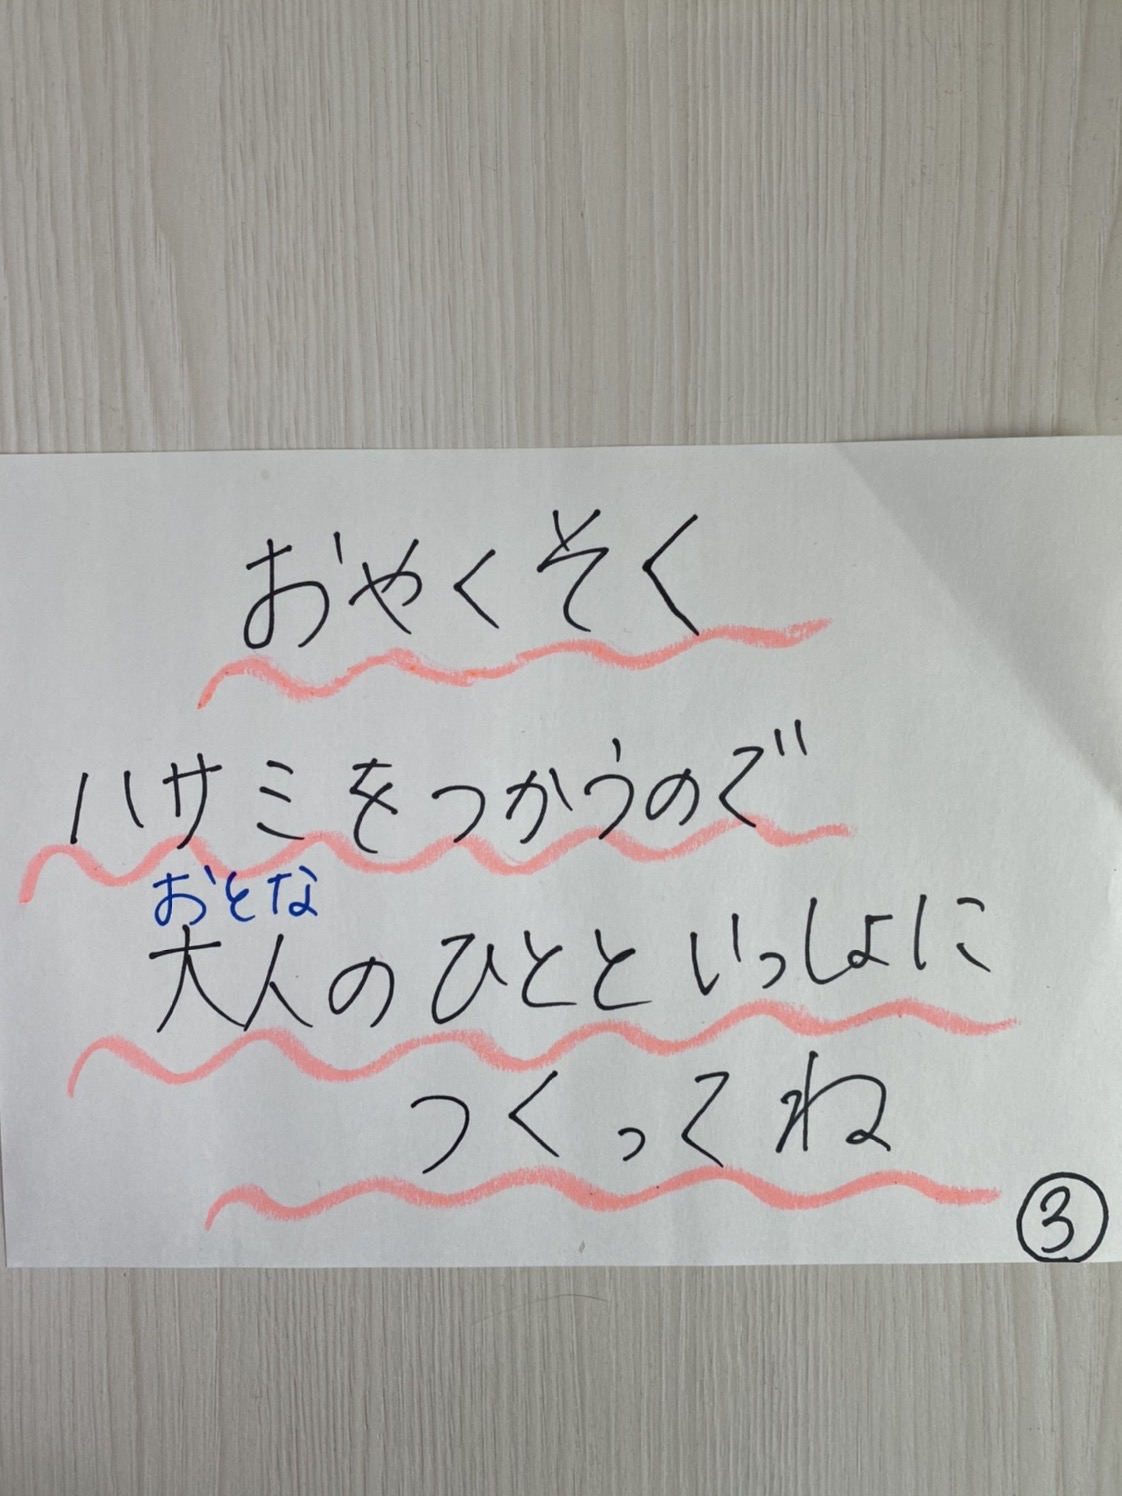 おやくそく
ハサミをつかうので
おとな
大人のひとといっしょに
つくってね
③